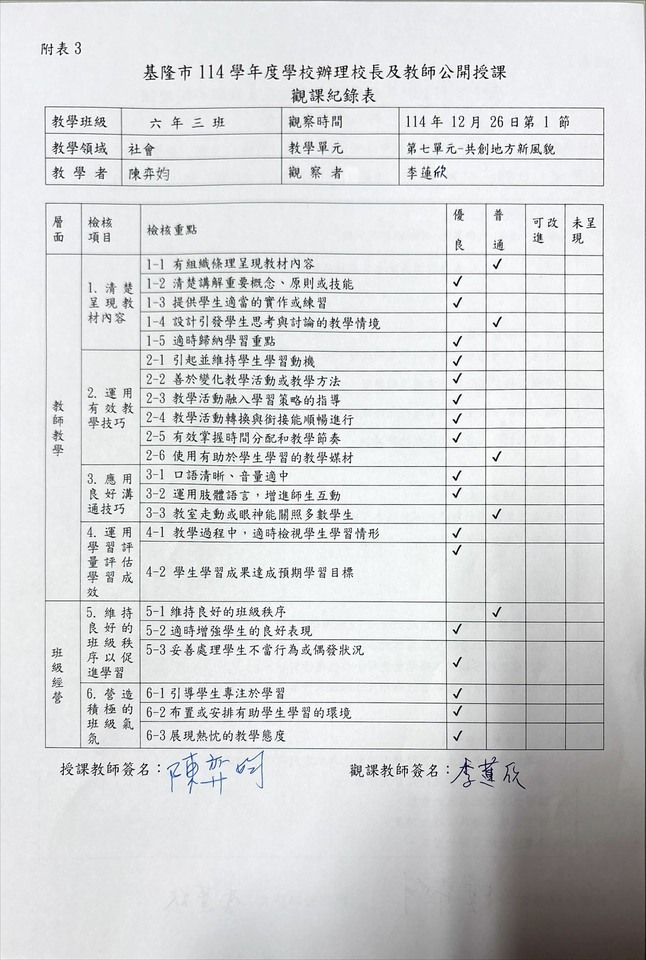 附表 3
基隆市 114 學年度學校辦理校長及教師公開授課
觀課紀錄表
教學班級 六年三班 觀察時間 114 年 12 月 26 日第 1 節
教學領域 社會 教學單元 第七單元-共創地方新風貌
教學者 陳弈均 觀察者 李蓮欣
層面 檢核項目 檢核重點 優良 普通 可改進 未呈現
教師教學
1. 清楚呈現教材內容
1-1 有組織條理呈現教材內容 ✓
1-2 清楚講解重要概念、原則或技能 ✓
1-3 提供學生適當的實作或練習 ✓
1-4 設計引發學生思考與討論的教學情境 ✓
1-5 適時歸納學習重點 ✓
2. 運用有效教學技巧
2-1 引起並維持學生學習動機 ✓
2-2 善於變化教學活動或教學方法 ✓
2-3 教學活動融入學習策略的指導 ✓
2-4 教學活動轉換與銜接能順暢進行 ✓
2-5 有效掌握時間分配和教學節奏 ✓
2-6 使用有助於學生學習的教學媒材 ✓
3. 應用良好溝通技巧
3-1 口語清晰、音量適中 ✓
3-2 運用肢體語言，增進師生互動 ✓
3-3 教室走動或眼神能關照多數學生 ✓
4. 運用學習評量評估學習成效
4-1 教學過程中，適時檢視學生學習情形 ✓
4-2 學生學習成果達成預期學習目標 ✓
班級經營
5. 維持良好的班級秩序以促進學習
5-1 維持良好的班級秩序 ✓
5-2 適時增強學生的良好表現 ✓
5-3 妥善處理學生不當行為或偶發狀況 ✓
6. 營造積極的班級氣氛
6-1 引導學生專注於學習 ✓
6-2 布置或安排有助學生學習的環境 ✓
6-3 展現熱忱的教學態度 ✓
授課教師簽名：陳弈均 觀課教師簽名：李蓮欣